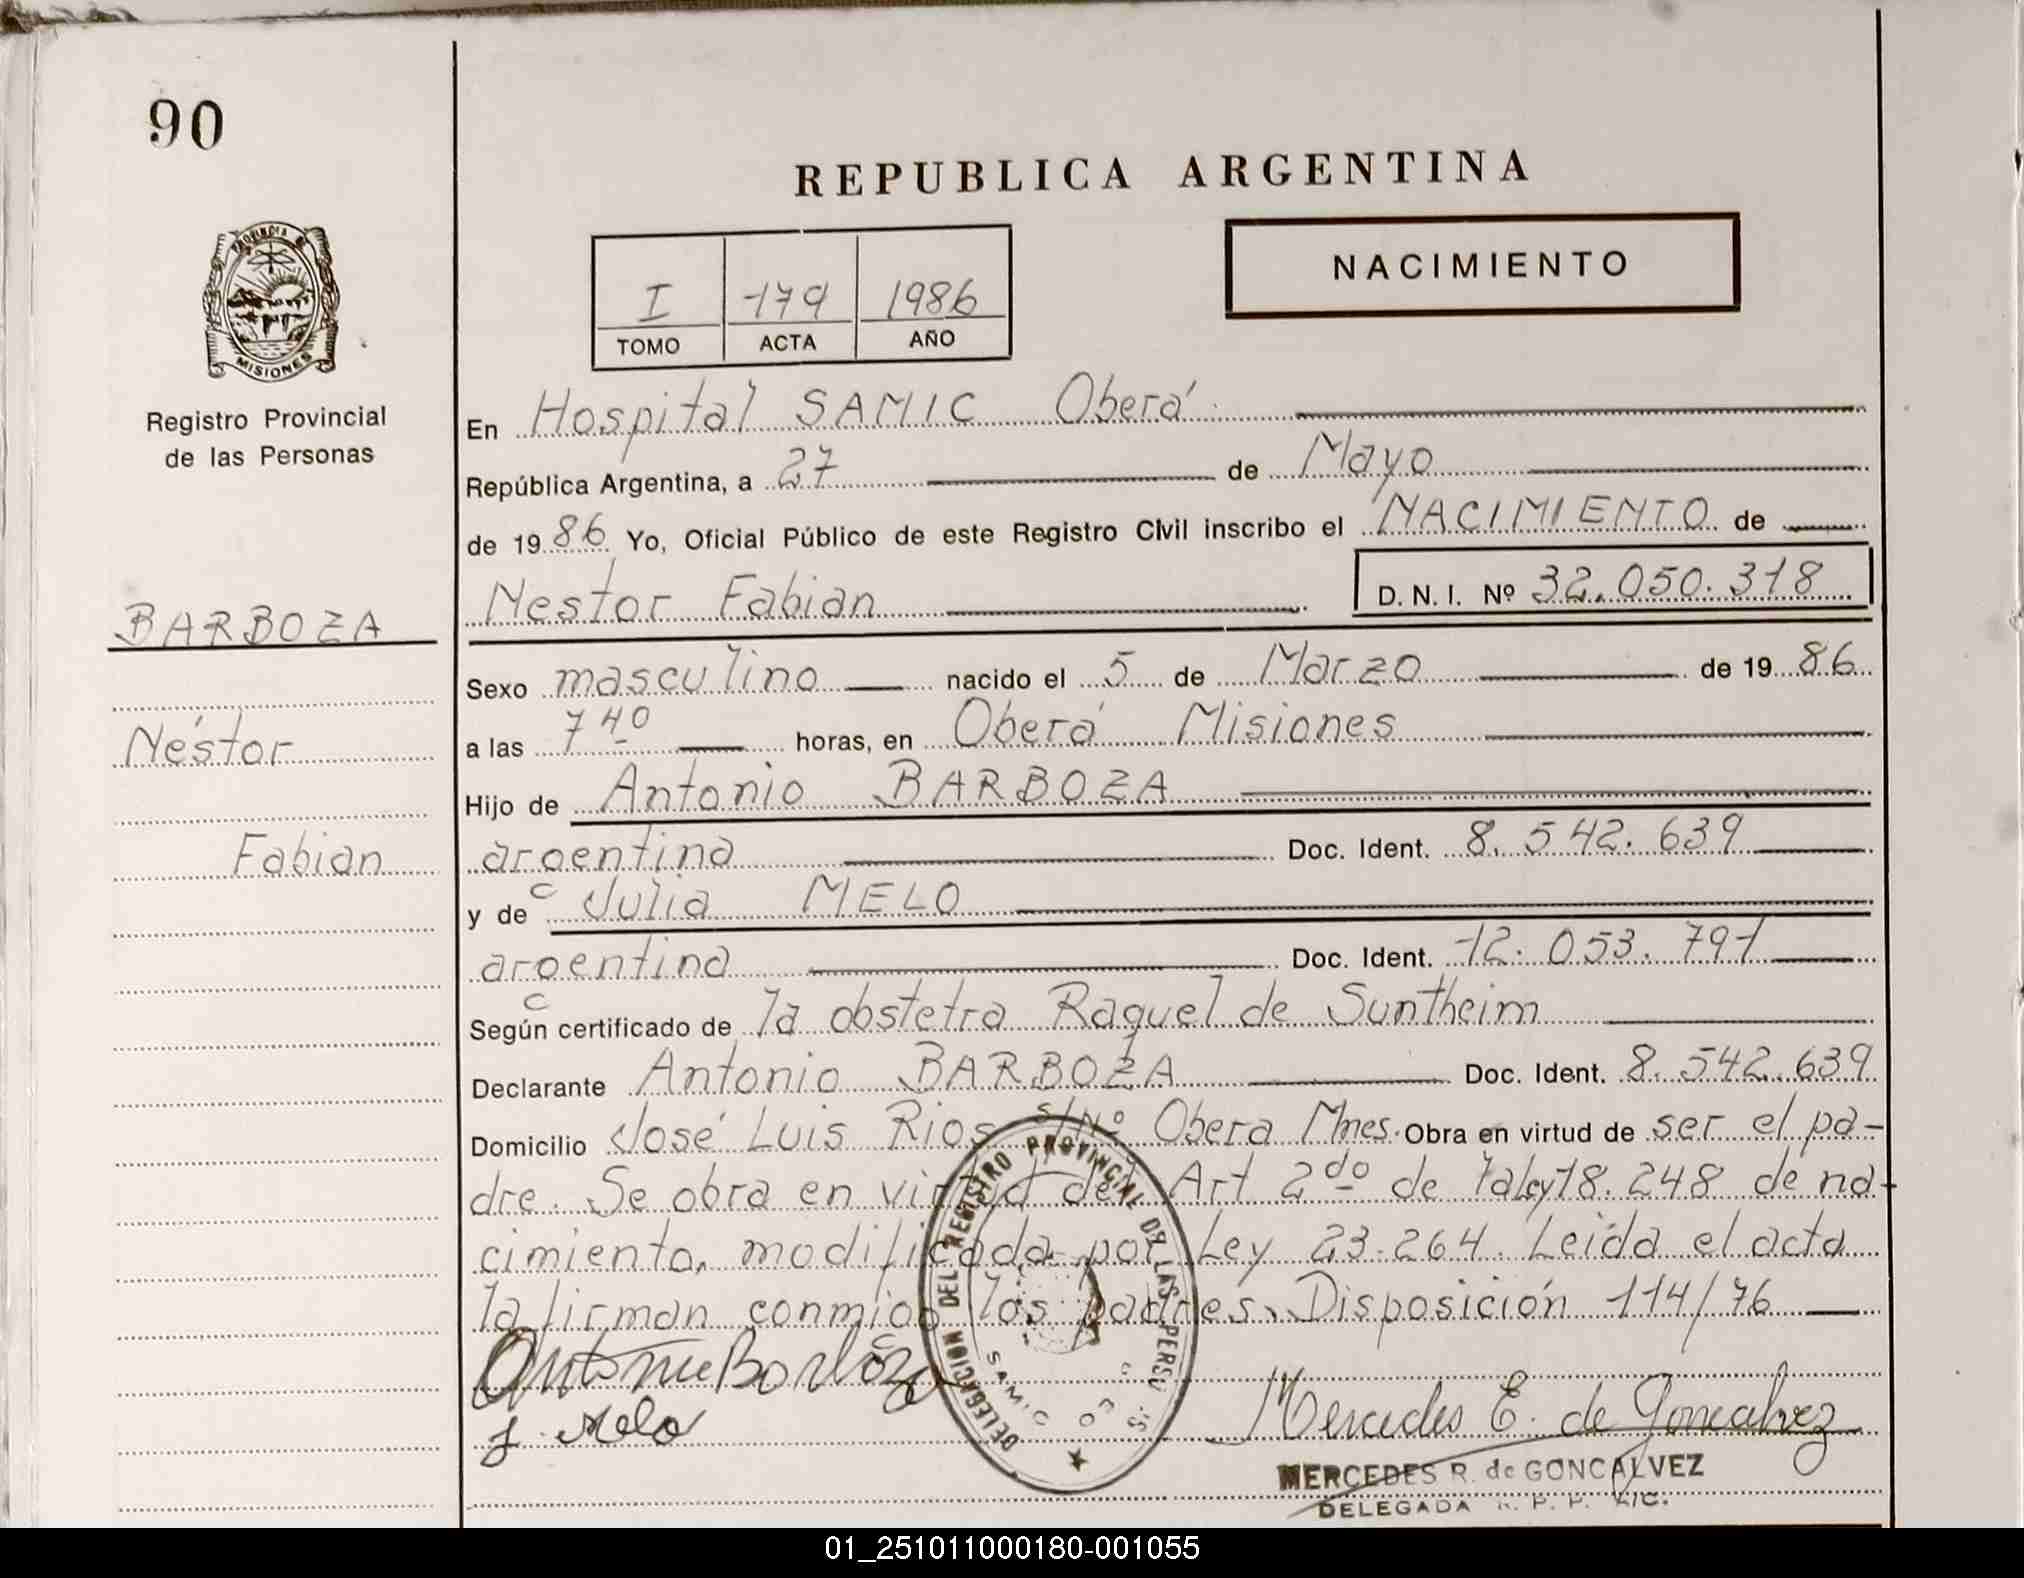 90
REPUBLICA ARGENTINA
PROVINCIA DE
MISIONES
Registro Provincial
de las Personas
I 179 1986
TOMO ACTA AÑO
NACIMIENTO
En Hospital SAMIC Oberá
República Argentina, a 27 de Mayo
de 1986 Yo, Oficial Público de este Registro Civil inscribo el NACIMIENTO de
Nestor Fabian D. N. I. Nº 32.050.318
BARBOZA
Néstor
Fabian
Sexo masculino nacido el 5 de Marzo de 1986
a las 7 40 horas, en Oberá Misiones
Hijo de Antonio BARBOZA
argentina Doc. Ident. 8.542.639
y de Julia MELO
argentina Doc. Ident. 12.053.791
Según certificado de la obstetra Raquel de Suntheim
Declarante Antonio BARBOZA Doc. Ident. 8.542.639
Domicilio José Luis Rios s/Nº Obera Mnes. Obra en virtud de ser el pa-
dre. Se obra en virtud del Art 2do de la ley 18.248 de na-
cimiento, modificada por Ley 23.264. Leida el acta
la firman conmigo los padres. Disposición 114/76
Antonio Barboza
J. Melo
DELEGACION DEL REGISTRO PROVINCIAL DE LAS PERS
SAMIC
Mercedes E. de Goncalvez
MERCEDES R. de GONCALVEZ
DELEGADA R. P. P.
01_251011000180-001055